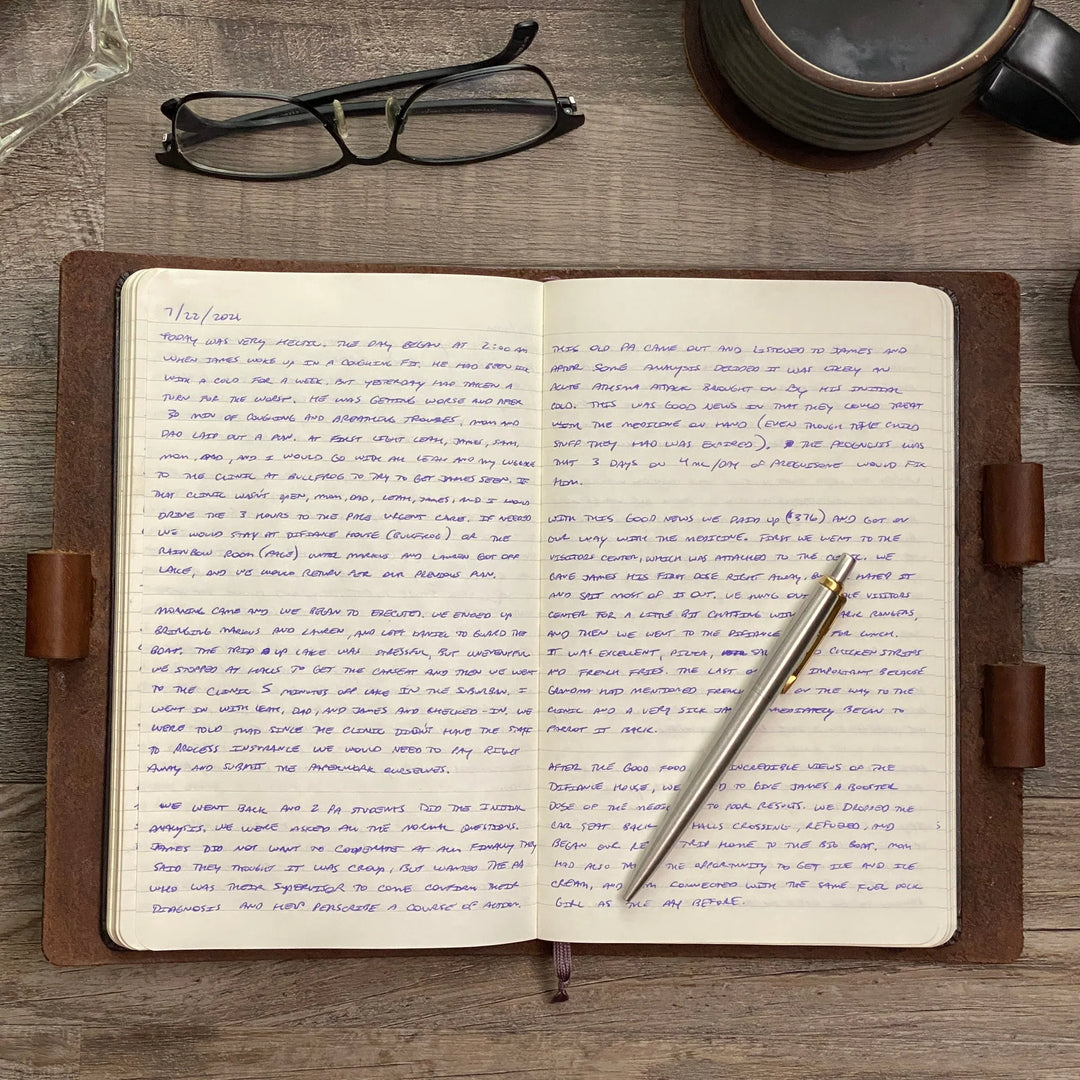 7/22/2021
TODAY WAS VERY HECTIC. THE DAY BEGAN AT 2:00 AM
WHEN JAMES WOKE UP IN A COUGHING FIT. HE HAD BEEN SICK
WITH A COLD FOR A WEEK, BUT YESTERDAY HAD TAKEN A
TURN FOR THE WORST. HE WAS GETTING WORSE AND AFTER
30 MIN OF COUGHING AND BREATHING TROUBLES, MOM AND
DAD LAID OUT A PLAN. AT FIRST LIGHT LEAH, JAMES, SAM,
MOM, DAD, AND I WOULD GO WITH ALL LEAH AND MY LUGGAGE
TO THE CLINIC AT BULLFROG TO TRY TO GET JAMES SEEN. IF
THAT CLINIC WASN'T OPEN, MOM, DAD, LEAH, JAMES, AND I WOULD
DRIVE THE 3 HOURS TO THE PAGE URGENT CARE. IF NEEDED
WE WOULD STAY AT DIFIANCE HOUSE (BULLFROG) OR THE
RAINBOW ROOM (PAGE) UNTIL MARKUS AND LAUREN GOT OFF
LAKE, AND WE WOULD RETURN PER OUR PREVIOUS PLAN.
MORNING CAME AND WE BEGAN TO EXECUTE. WE ENDED UP
BRINGING MARKUS AND LAUREN, AND LEFT DANIEL TO GUARD THE
BOAT. THE TRIP UP LAKE WAS STRESSFUL, BUT UNEVENTFUL.
WE STOPPED AT HALLS TO GET THE CARSEAT AND THEN WE WENT
TO THE CLINIC 5 MINUTES OFF LAKE IN THE SUBURBAN. I
WENT IN WITH LEAH, DAD, AND JAMES AND CHECKED-IN. WE
WERE TOLD THAT SINCE THE CLINIC DIDN'T HAVE THE STAFF
TO PROCESS INSURANCE WE WOULD NEED TO PAY RIGHT
AWAY AND SUBMIT THE PAPERWORK OURSELVES.
WE WENT BACK AND 2 PA STUDENTS DID THE INITIAL
ANALYSIS. WE WERE ASKED ALL THE NORMAL QUESTIONS.
JAMES DID NOT WANT TO COOPERATE AT ALL. FINALLY THEY
SAID THEY THOUGHT IT WAS CROUP, BUT WANTED THE PA
WHO WAS THEIR SUPERVISOR TO COME CONFIRM THEIR
DIAGNOSIS AND HELP PERSCRIBE A COURSE OF ACTION.
THIS OLD PA CAME OUT AND LISTENED TO JAMES AND
AFTER SOME ANALYSIS DECIDED IT WAS LIKELY AN
ACUTE ATHSMA ATTACK BROUGHT ON BY HIS INITIAL
COLD. THIS WAS GOOD NEWS IN THAT THEY COULD TREAT
WITH THE MEDICINE ON HAND (EVEN THOUGH THE CHILD
STUFF THEY HAD WAS EXPIRED). THE PROGNOSIS WAS
THAT 3 DAYS ON 4ML/DAY OF PREGNISONE WOULD FIX
HIM.
WITH THIS GOOD NEWS WE PAID UP ($376) AND GOT ON
OUR WAY WITH THE MEDICINE. FIRST WE WENT TO THE
VISITORS CENTER, WHICH WAS ATTACHED TO THE CLINIC. WE
GAVE JAMES HIS FIRST DOSE RIGHT AWAY, HATED IT
AND SPIT MOST OF IT OUT. WE HUNG OUT VISITORS
CENTER FOR A LITTLE BIT CHATTING WITH RANGERS,
AND THEN WE WENT TO THE DIFIANCE FOR LUNCH.
IT WAS EXCELLENT, PIZZA, CHICKEN STRIPS
AND FRENCH FRIES. THE LAST IMPORTANT BECAUSE
GRANDMA HAD MENTIONED FRENCH ON THE WAY TO THE
CLINIC AND A VERY SICK BEGAN TO
PARROT IT BACK.
AFTER THE GOOD FOOD INCREDIBLE VIEWS OF THE
DIFIANCE HOUSE, WE TO GIVE JAMES A BOOSTER
DOSE OF THE TO POOR RESULTS. WE DROPPED THE
CAR SEAT BACK HALLS CROSSING, REFUELED, AND
BEGAN OUR TRIP HOME TO THE BIG BOAT. MOM
HAD ALSO THE OPPORTUNITY TO GET ICE AND ICE
CREAM, AND CONNECTED WITH THE SAME FUEL DOCK
GIRL AS THE BEFORE.